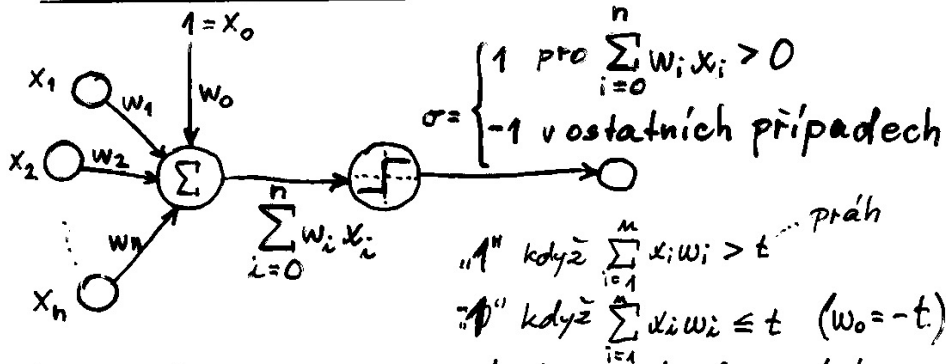 1 = x₀
x₁
w₁
w₀
x₂
w₂
Σ
wₙ
xₙ
∑ᵢ₌₀ⁿ wᵢ xᵢ
σ = { 1 pro ∑ᵢ₌₀ⁿ wᵢ xᵢ > 0
-1 v ostatních případech
„1" když ∑ᵢ₌₁ⁿ xᵢ wᵢ > t ... práh
když ∑ᵢ₌₁ⁿ xᵢ wᵢ ≤ t (w₀ = -t)